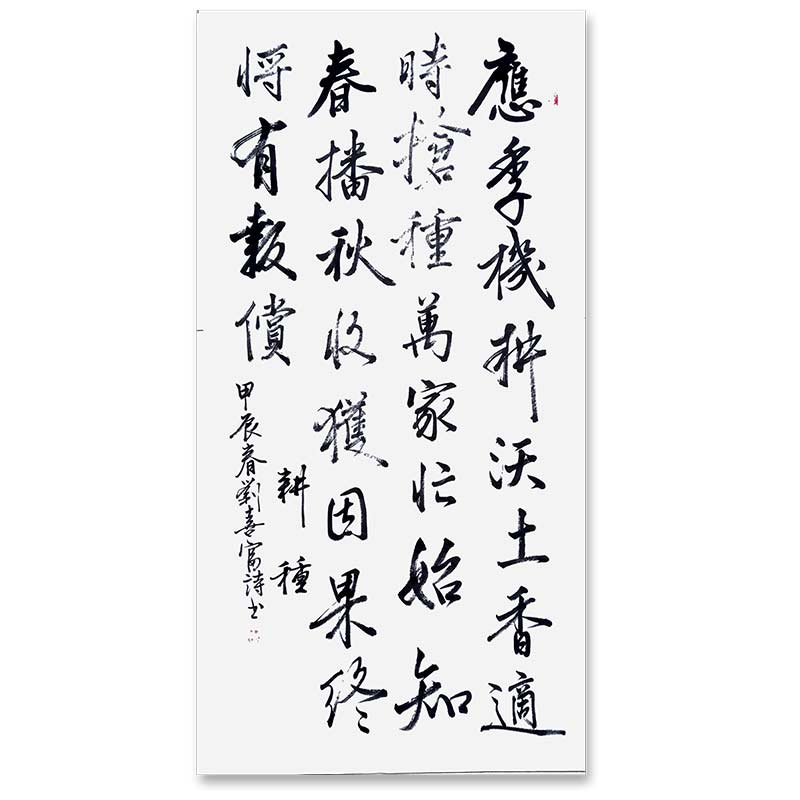 應季機耕沃土香適
時搶種萬家忙始知
春播秋收獲因果終
將有報償
耕種
甲辰春劉喜富詩書